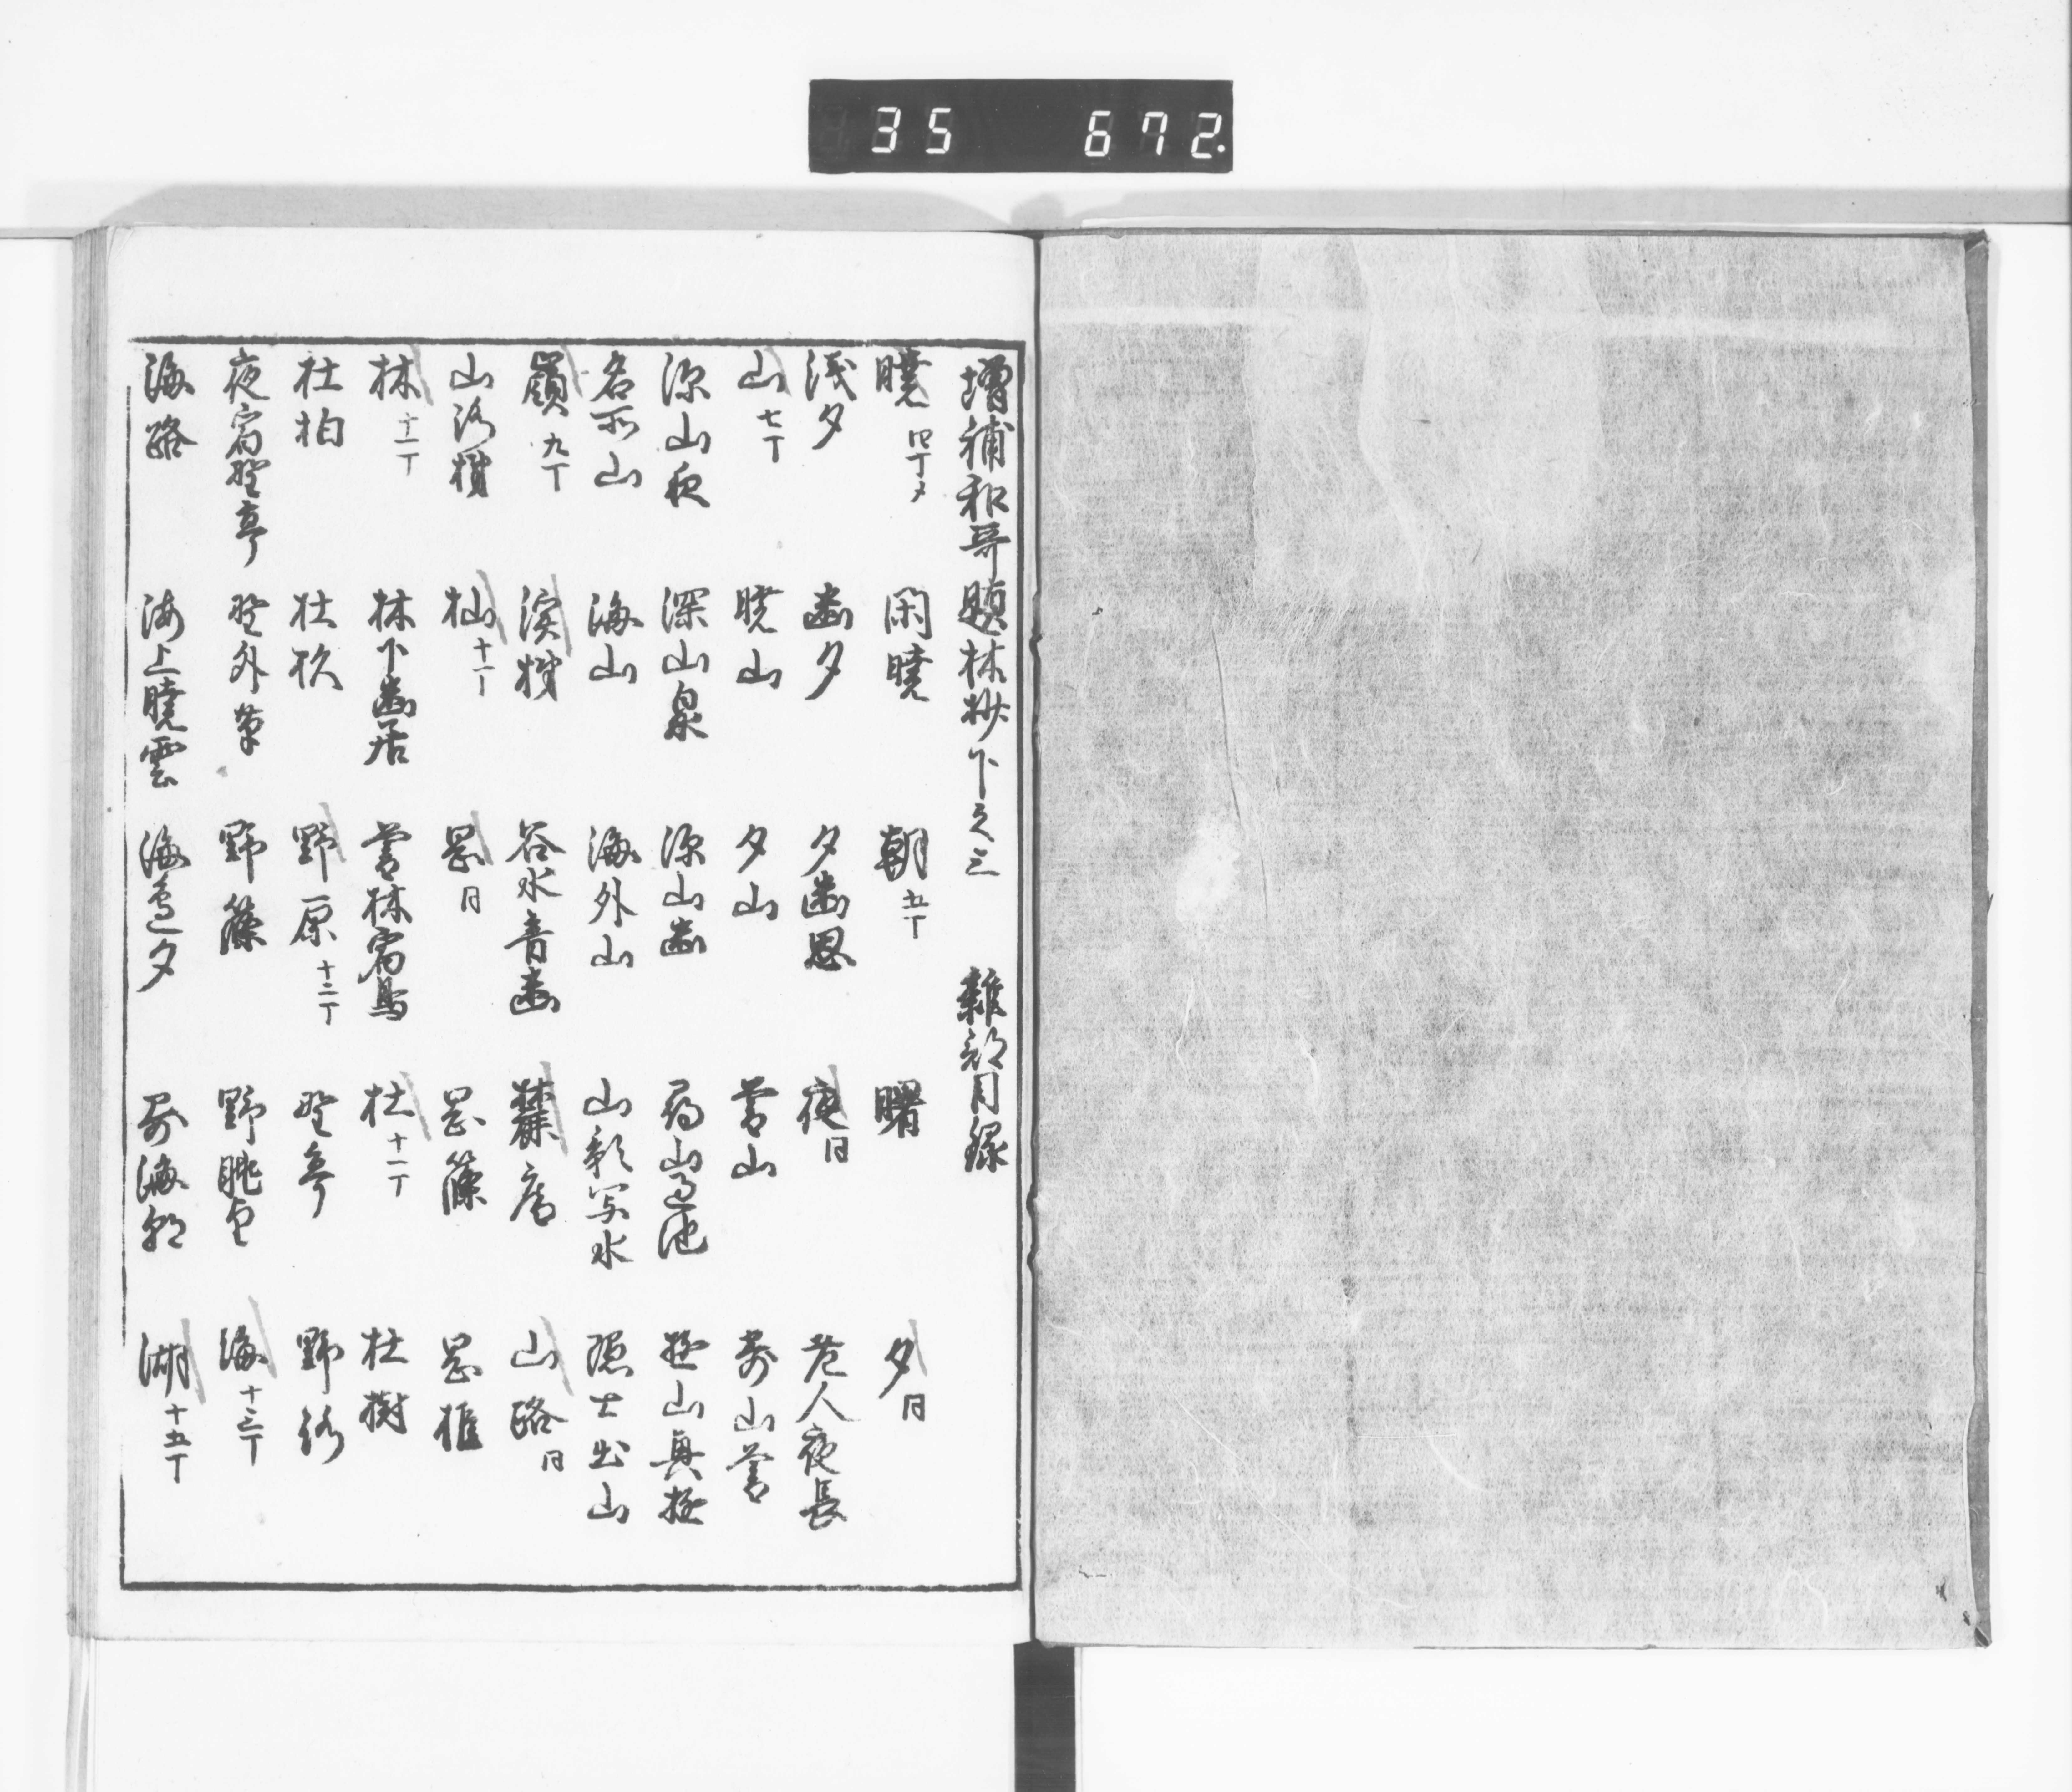 35 672.
増補和哥題林抄下之三 雑部目録
暁 四丁メ 閑暁 朝 五丁 曙 夕 同
浅夕 幽夕 夕幽思 夜 同 老人夜長
山 七丁 暁山 夕山 薄暮山 山暮
深山夜 深山泉 深山幽 山辺池 山
名所山 海山 海外山 山影写水 隠士出山
嶺 九丁 渓樹 谷水音幽 麓庵 山路 同
山路樹 杣 十一丁 岡 同 岡篠 岡椎
林 十一丁 林下幽居 暮林宿鳥 杜 十一丁 杜樹
杜柏 杜杉 野原 十二丁 野亭 野路
夜宿野亭 野外草 野篠 野眺望 海 十三丁
海路 海上暁雲 海辺夕 寄海朝 湖 十五丁